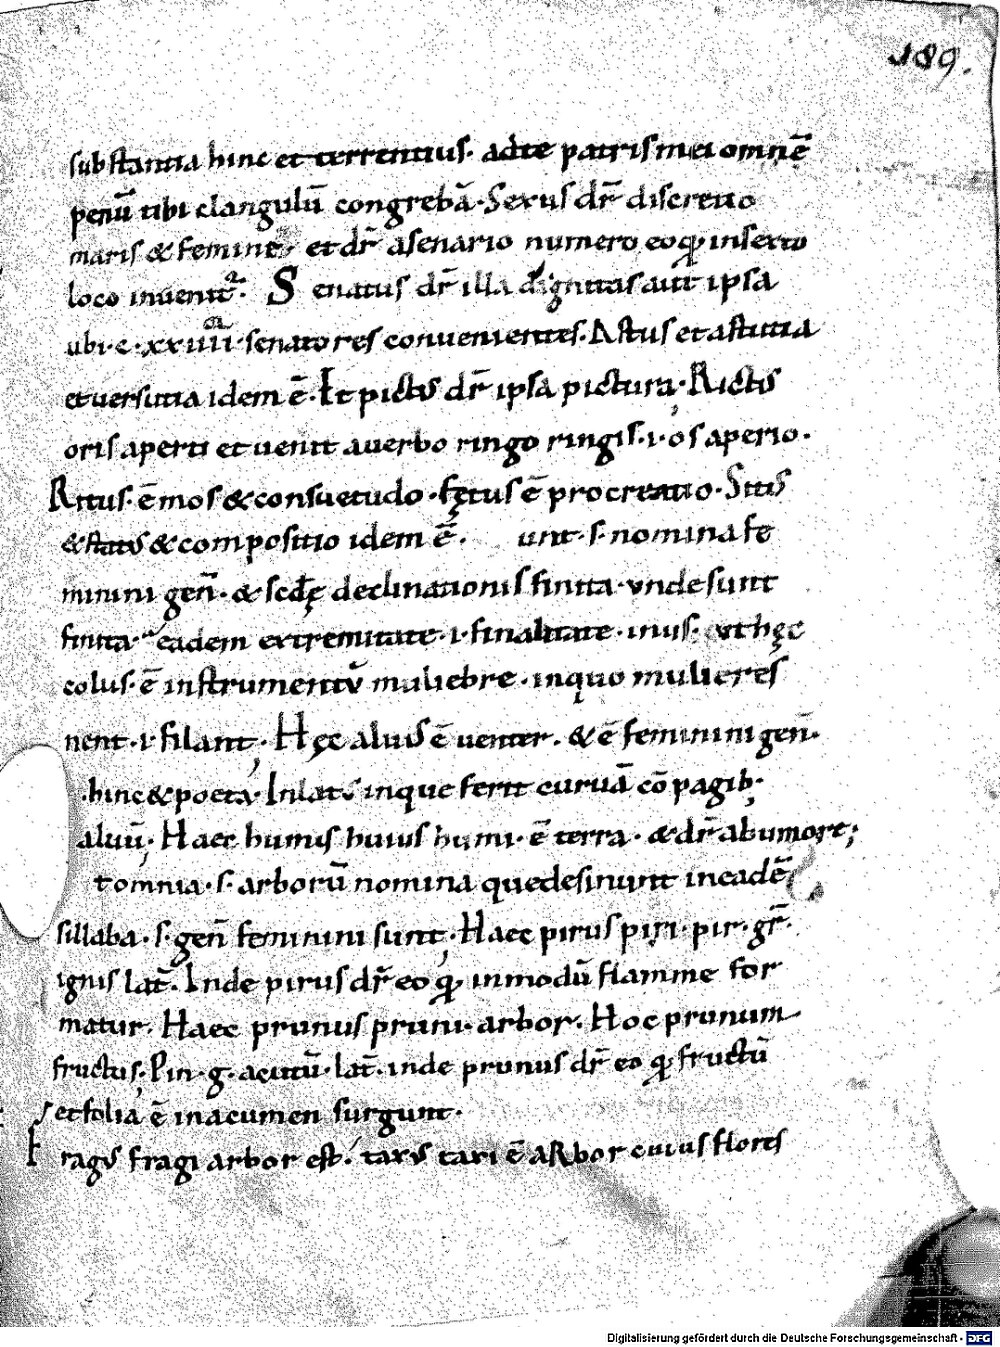 189.
substantia hinc et terrentius· adte patris mei omnē
penū tibi clangulū congrebā· Sexus dr̄ discretio
maris & femine et dr̄ asenario numero eo qđ inserto
loco inuenit᷑· Senatus dr̄ illa dignitas aut̄ ipsa
ubi·c·xxiiii· senatores conuenientes· Astus et astutia
et uersutia idem ē· It pictus dr̄ ipsa pictura· Rictus
oris aperti et uenit auerbo ringo ringis·i·os aperio·
Ritus· ē mos & consuetudo· fętus ē procreatio· Situs
& status & compositio idem ē· unt·s·nomina fe
minini geñ· & scdę declinationis finita· vnde sunt
finita· eadem extremitate·i·finalitate· inus· ut hęc
colus· ē instrumentū muliebre· inquo mulieres
nent·i·filant· Hęc aluus ē uenter· & ē feminini geñ·
·hinc & poeta· Inlatus inque ferit curuā cō pagib;
aluū· Haec humus huius humi· ē terra· & dr̄ abumore;
tomnia·s·arborū nomina quedesinunt in eadē
sillaba·s·geñ feminini sunt· Haec pirus piri·pir·gr̄·
ignis lat̄· Inde pirus dr̄ eo qđ inmodū flamme for
matur· Haec prunus pruni·arbor· Hoc prunum
fructus· Pin·g·acutū·lat̄· inde prunus dr̄ eo qđ fructū
et folia ē in acumen surgunt·
Fragus fragi arbor est· taxus taxi ē aRbor cuius flores
Digitalisierung gefördert durch die Deutsche Forschungsgemeinschaft - DFG